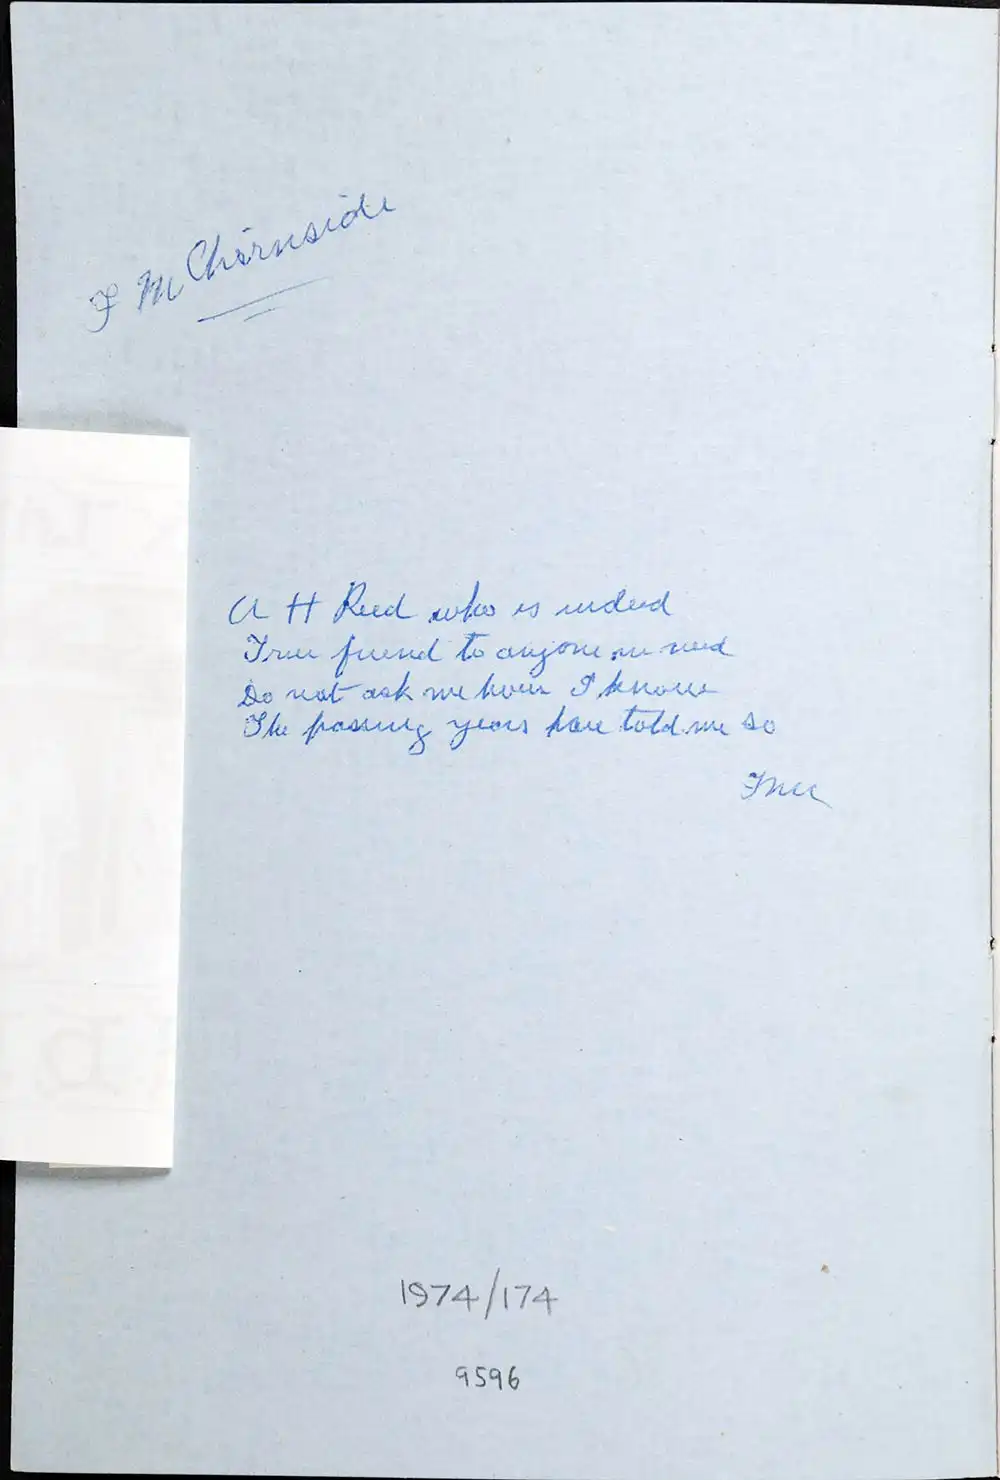 F M Chirnside
A H Reed who is indeed
True friend to anyone in need
Do not ask me how I know
The passing years have told me so
FMC
1974/174
9596